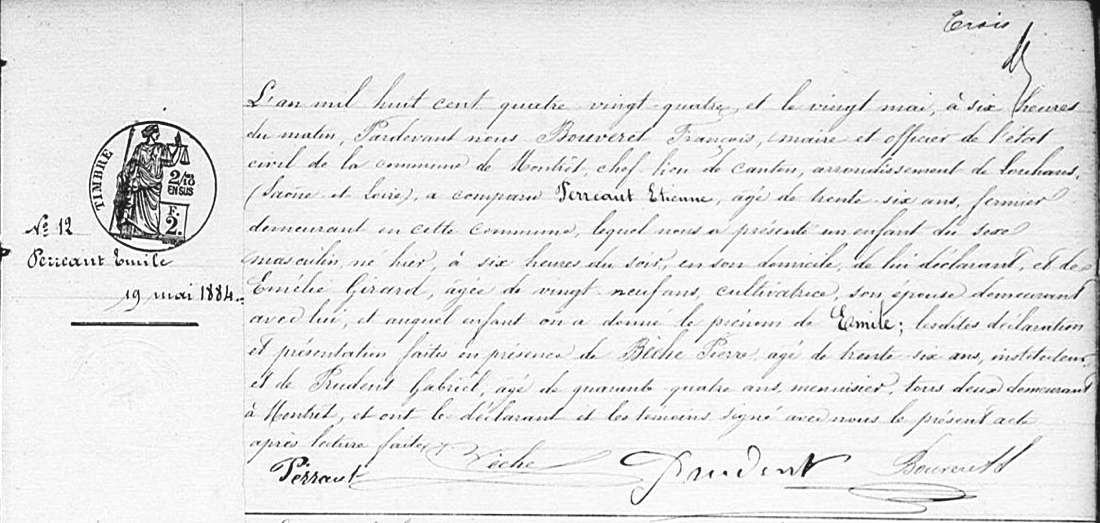 Trois
TIMBRE
2/10
EN SUS
F.
2.
N.º 12
Perreaut Emile
19 mai 1884.
L'an mil huit cent quatre vingt-quatre, et le vingt mai, à six heures
du matin, Pardevant nous Bouveret François, maire et officier de l'état
civil de la commune de Montrêt, chef-lieu de canton, arrondissement de Louhans,
(Saône et Loire), a comparu Perreaut Etienne, âgé de trente-six ans, fermier
demeurant en cette commune, lequel nous a présenté un enfant du sexe
masculin, né hier, à six heures du soir, en son domicile, de lui déclarant, et de
Emélie Girard, âgée de vingt-neuf ans, cultivatrice, son épouse demeurant
avec lui, et auquel enfant on a donné le prénom de Emile; lesdites déclaration
et présentation faites en présence de Bêche Pierre, âgé de trente-six ans, instituteur,
et de Prudent Gabriel, âgé de quarante-quatre ans, menuisier, tous deux demeurant
à Montrêt, et ont le déclarant et les témoins signé avec nous le présent acte
après lecture faite.
Perraut Bêche Prudent Bouveret